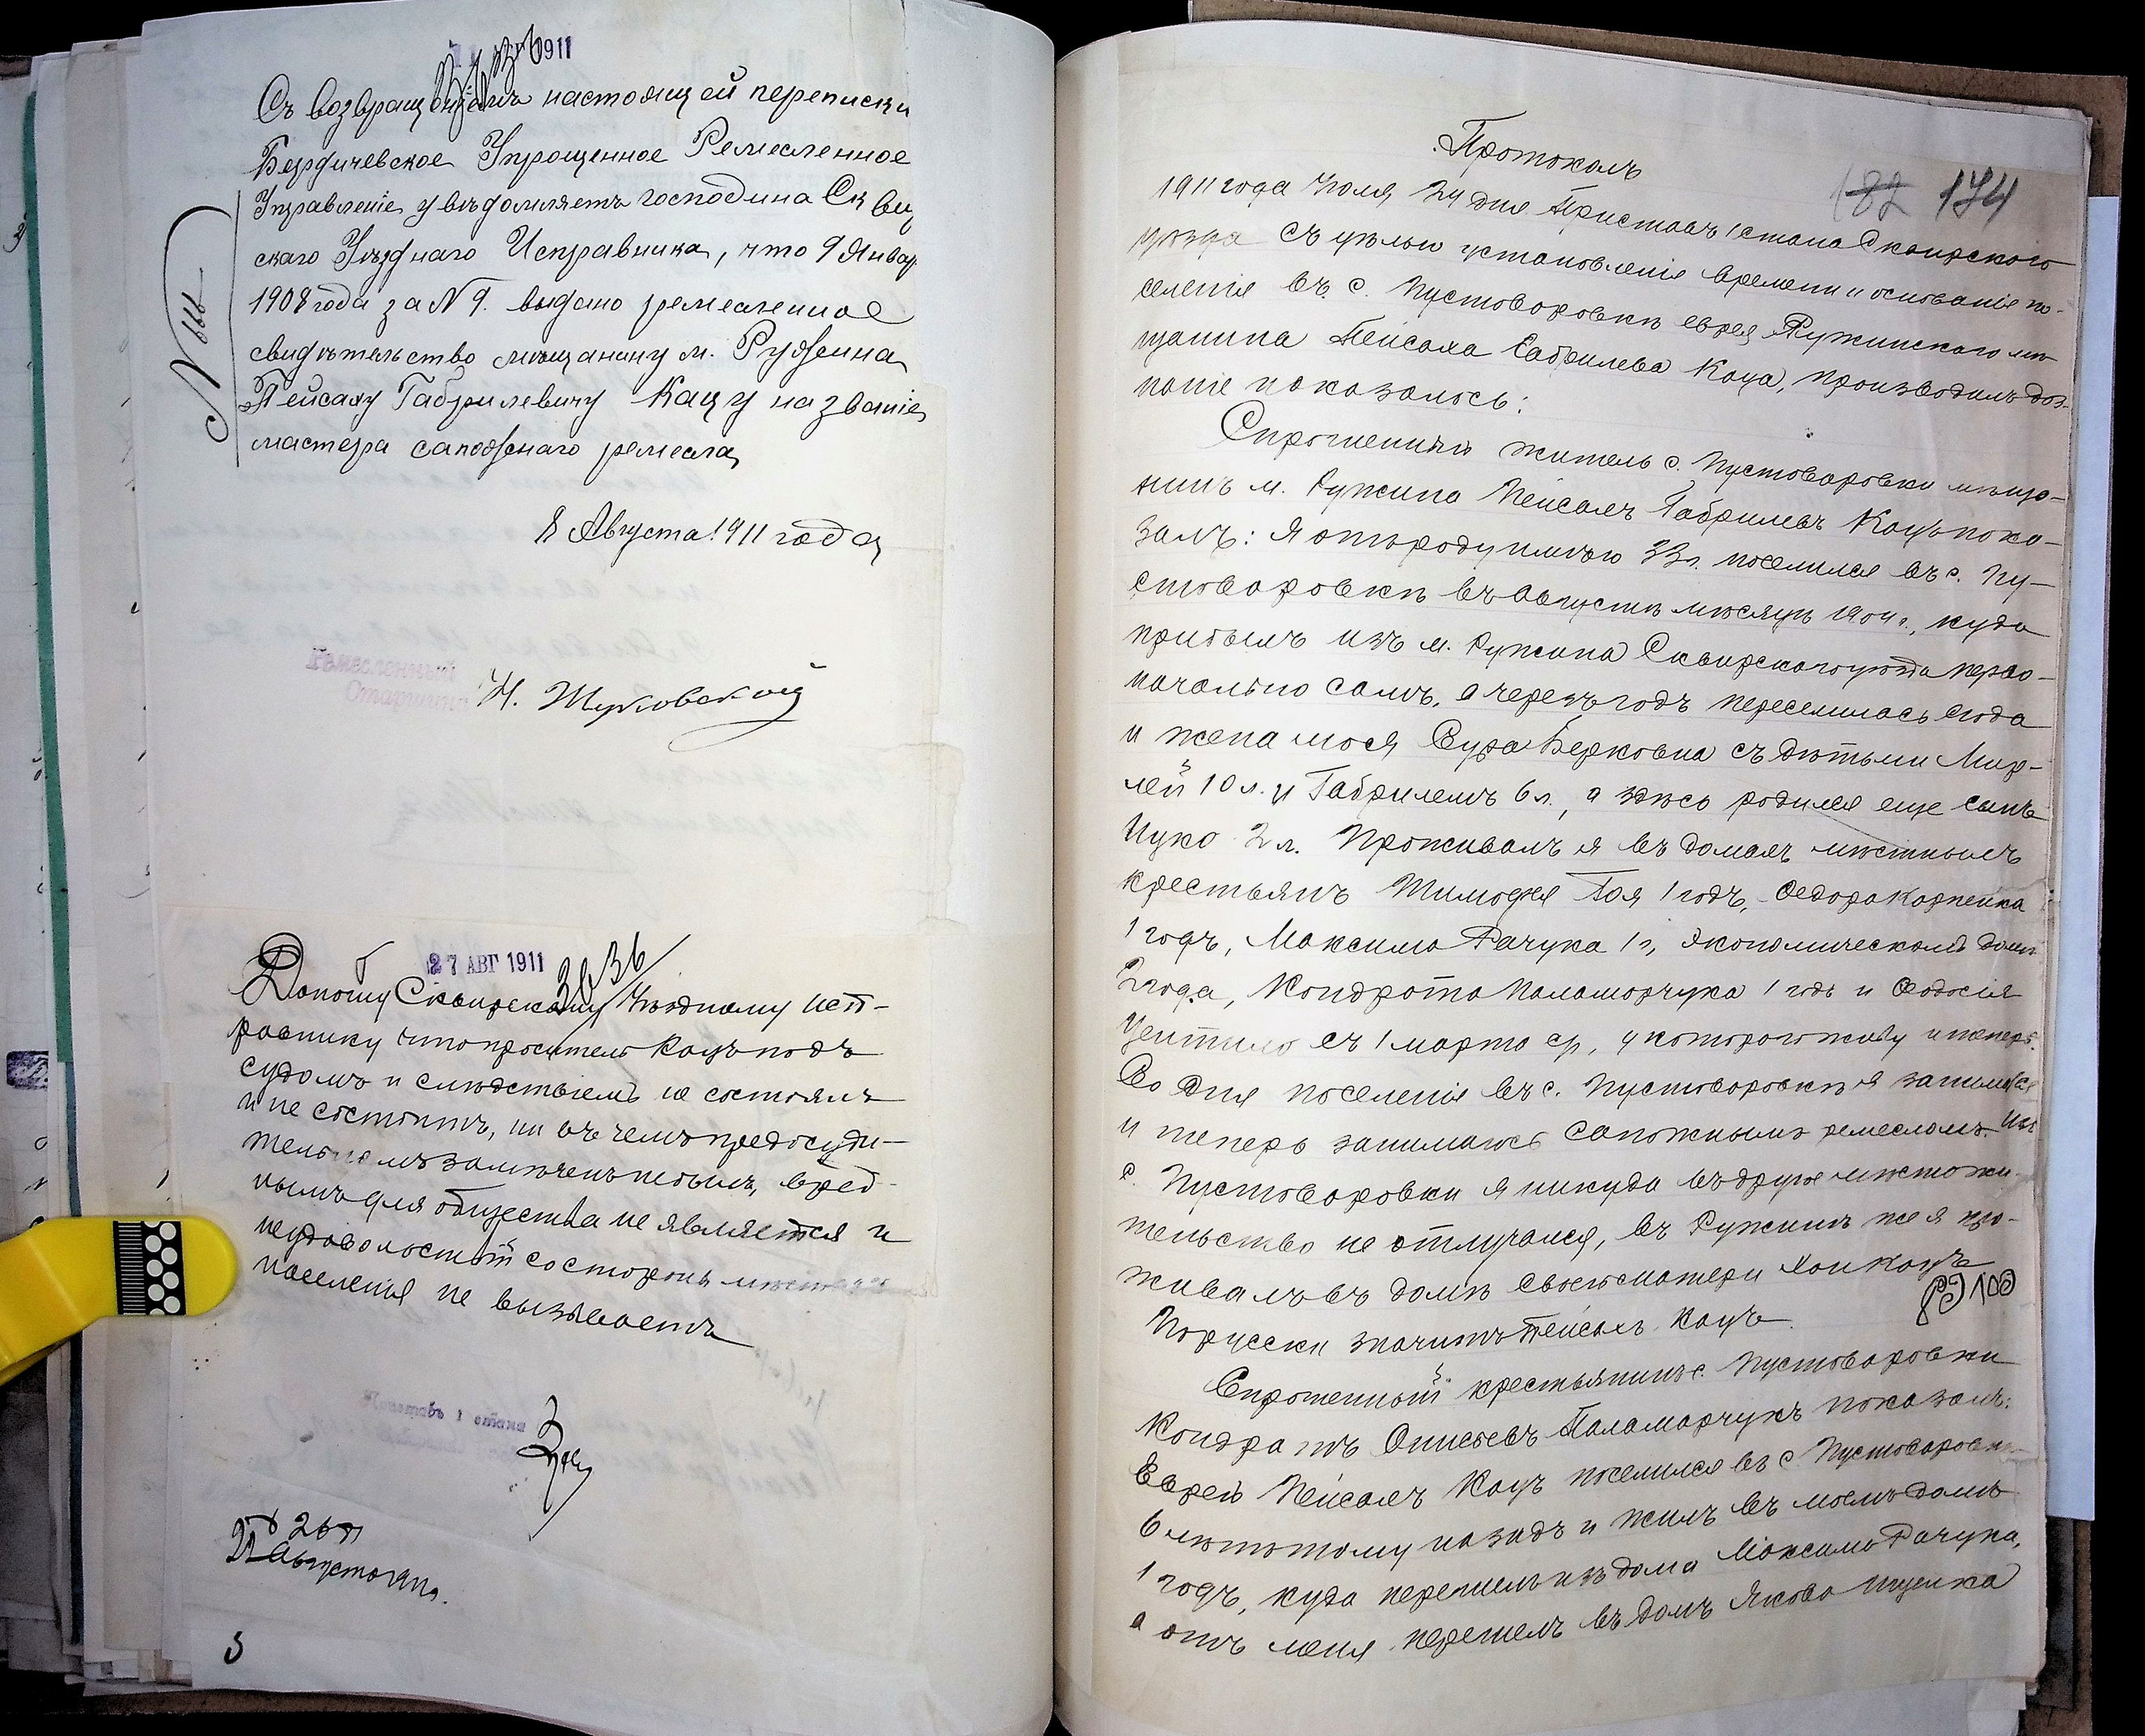 1911
Съ возвращеніемъ настоящей переписки
Бердичевское Упрощенное Ремесленное
Управленіе увѣдомляетъ господина Сквир
скаго Уѣзднаго Исправника, что 9 Январ
1908 года за № 9. выдано ремесленное
свидѣтельство мѣщанину м. Ружина
Пейсаху Габрилевичу Кацу на званіе
мастера сапожнаго ремесла
8 Августа 1911 года
Ремесленный
Старшина Н. Жуковскій
27 АВГ 1911
3036
Доношу Сквирскому Уѣздному Исп-
равнику что проситель Кацъ подъ
судомъ и слѣдствіемъ не состоялъ
и не состоитъ, ни въ чемъ предосуди-
тельномъ замѣченъ не былъ, вред-
нымъ для общества не является и
неудовольствій со стороны мѣстнаго
населенія не вызываетъ
Приставъ 1 стана
Августа 1911 г.
Протоколъ
182 174
1911 года Іюля 24 дня Приставъ 1 стана Сквирскаго
уѣзда съ цѣлью установленія времени и основанія по-
селенія въ с. Пустоворовкѣ еврея Ружинскаго мѣ-
щанина Пейсаха Габрилева Каца, производилъ доз-
наніе и оказалось:
Спрошенный житель с. Пустоворовки мѣща-
нинъ м. Ружина Пейсахъ Габрилевъ Кацъ пока-
залъ: Я отъ роду имѣю 33 л. поселился въ с. Пу-
стоворовкѣ въ Августѣ мѣсяцѣ 1904 г., куда
прибылъ изъ м. Ружина Сквирскаго уѣзда перво-
начально самъ, а черезъ годъ переселилась сюда
и жена моя Сура Берковна съ дѣтьми Мир-
лей 10 л. и Габрилемъ 6 л., а здѣсь родился еще сынъ
Ицко 2 л. Проживалъ я въ домахъ мѣстныхъ
крестьянъ Тимофея Гоя 1 годъ, Федора Карпенка
1 годъ, Максима Рачука 1 г, Экономическомъ домѣ
2 года, Кондрата Паламарчука 1 годъ и Федосія
съ 1 марта ср, у котораго живу и теперь.
Со дня поселенія въ с. Пустоворовкѣ я занимался
и теперь занимаюсь сапожнымъ ремесломъ. Изъ
с. Пустоворовки я никуда въ другое мѣсто жи-
тельство не отлучался, въ Ружинѣ же я про-
живалъ въ домѣ своей матери Ханы Кацъ
По русски значитъ Пейсахъ Кацъ.
Спрошенный крестьянинъ с. Пустоворовки
Кондратъ Онисьевъ Паламарчукъ показалъ:
Еврей Пейсахъ Кацъ поселился въ с. Пустоворовкѣ
6 лѣтъ тому назадъ и жилъ въ моемъ домѣ
1 годъ, куда перешелъ изъ дома Максима Рачука,
а отъ меня перешелъ въ домъ Якова Ищенка